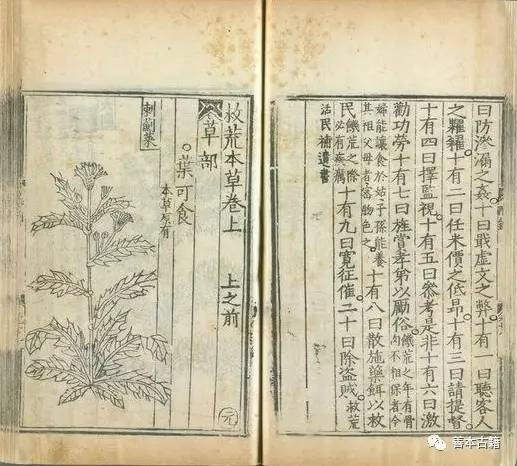 曰防淤溺之姦十曰戢虛文之弊十有一曰聽客人
之糶糴十有二曰任米價之低昂十有三曰請提督
十有四曰擇監視十有五曰參考是非十有六曰激
勸功勞十有七曰旌當孝弟以勵俗饑荒之年有骨肉不相保者令
婦能讓食於姑子孫能養其祖父母者當物色之十有八曰散施藥餌以救
民饑荒之際必有疾癘十有九曰寬征催二十曰除盜賊救荒
活民補遺書
救荒本草卷上 上之前
草部
葉可食
本草原有
刺薊菜
元
善本古籍